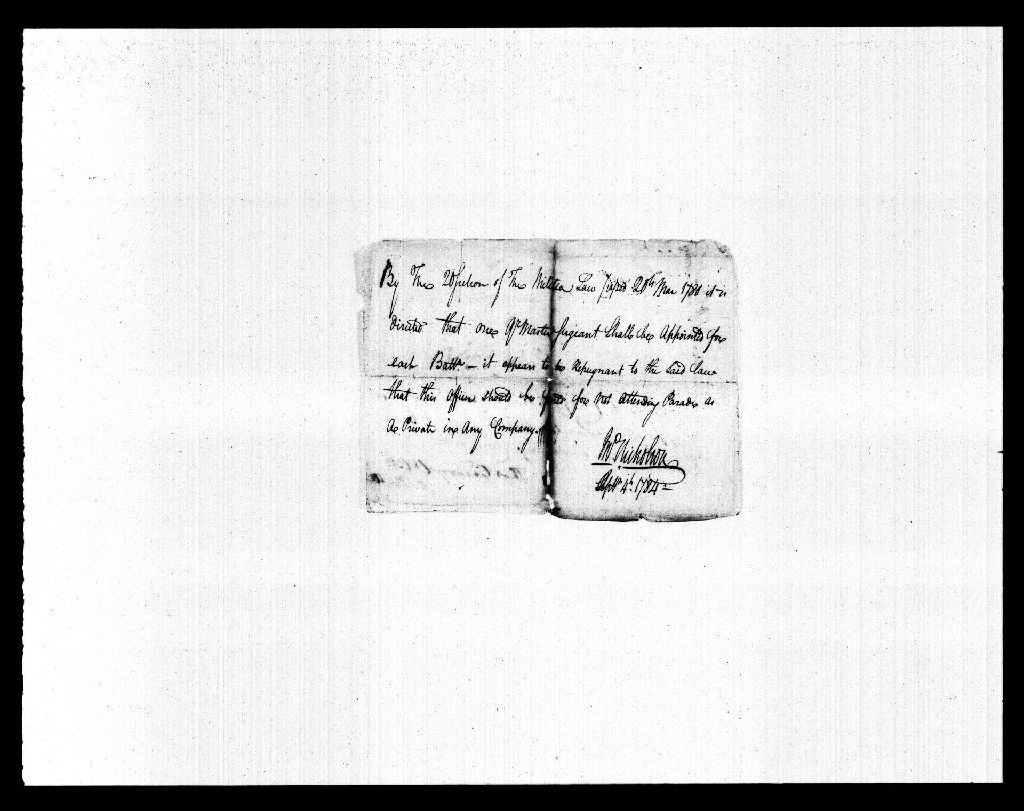 By The 2d Section of The Militia Law Passed 20th Mar 1780 it is
directed that one Qr Master Sergeant Shall be Appointed for
each Battn - it appears to be Repugnant to the said Law
that this officer should be fined for not attending Parade as
a Private in any Company.
Jno Nicholson
Sepr 4th 1784